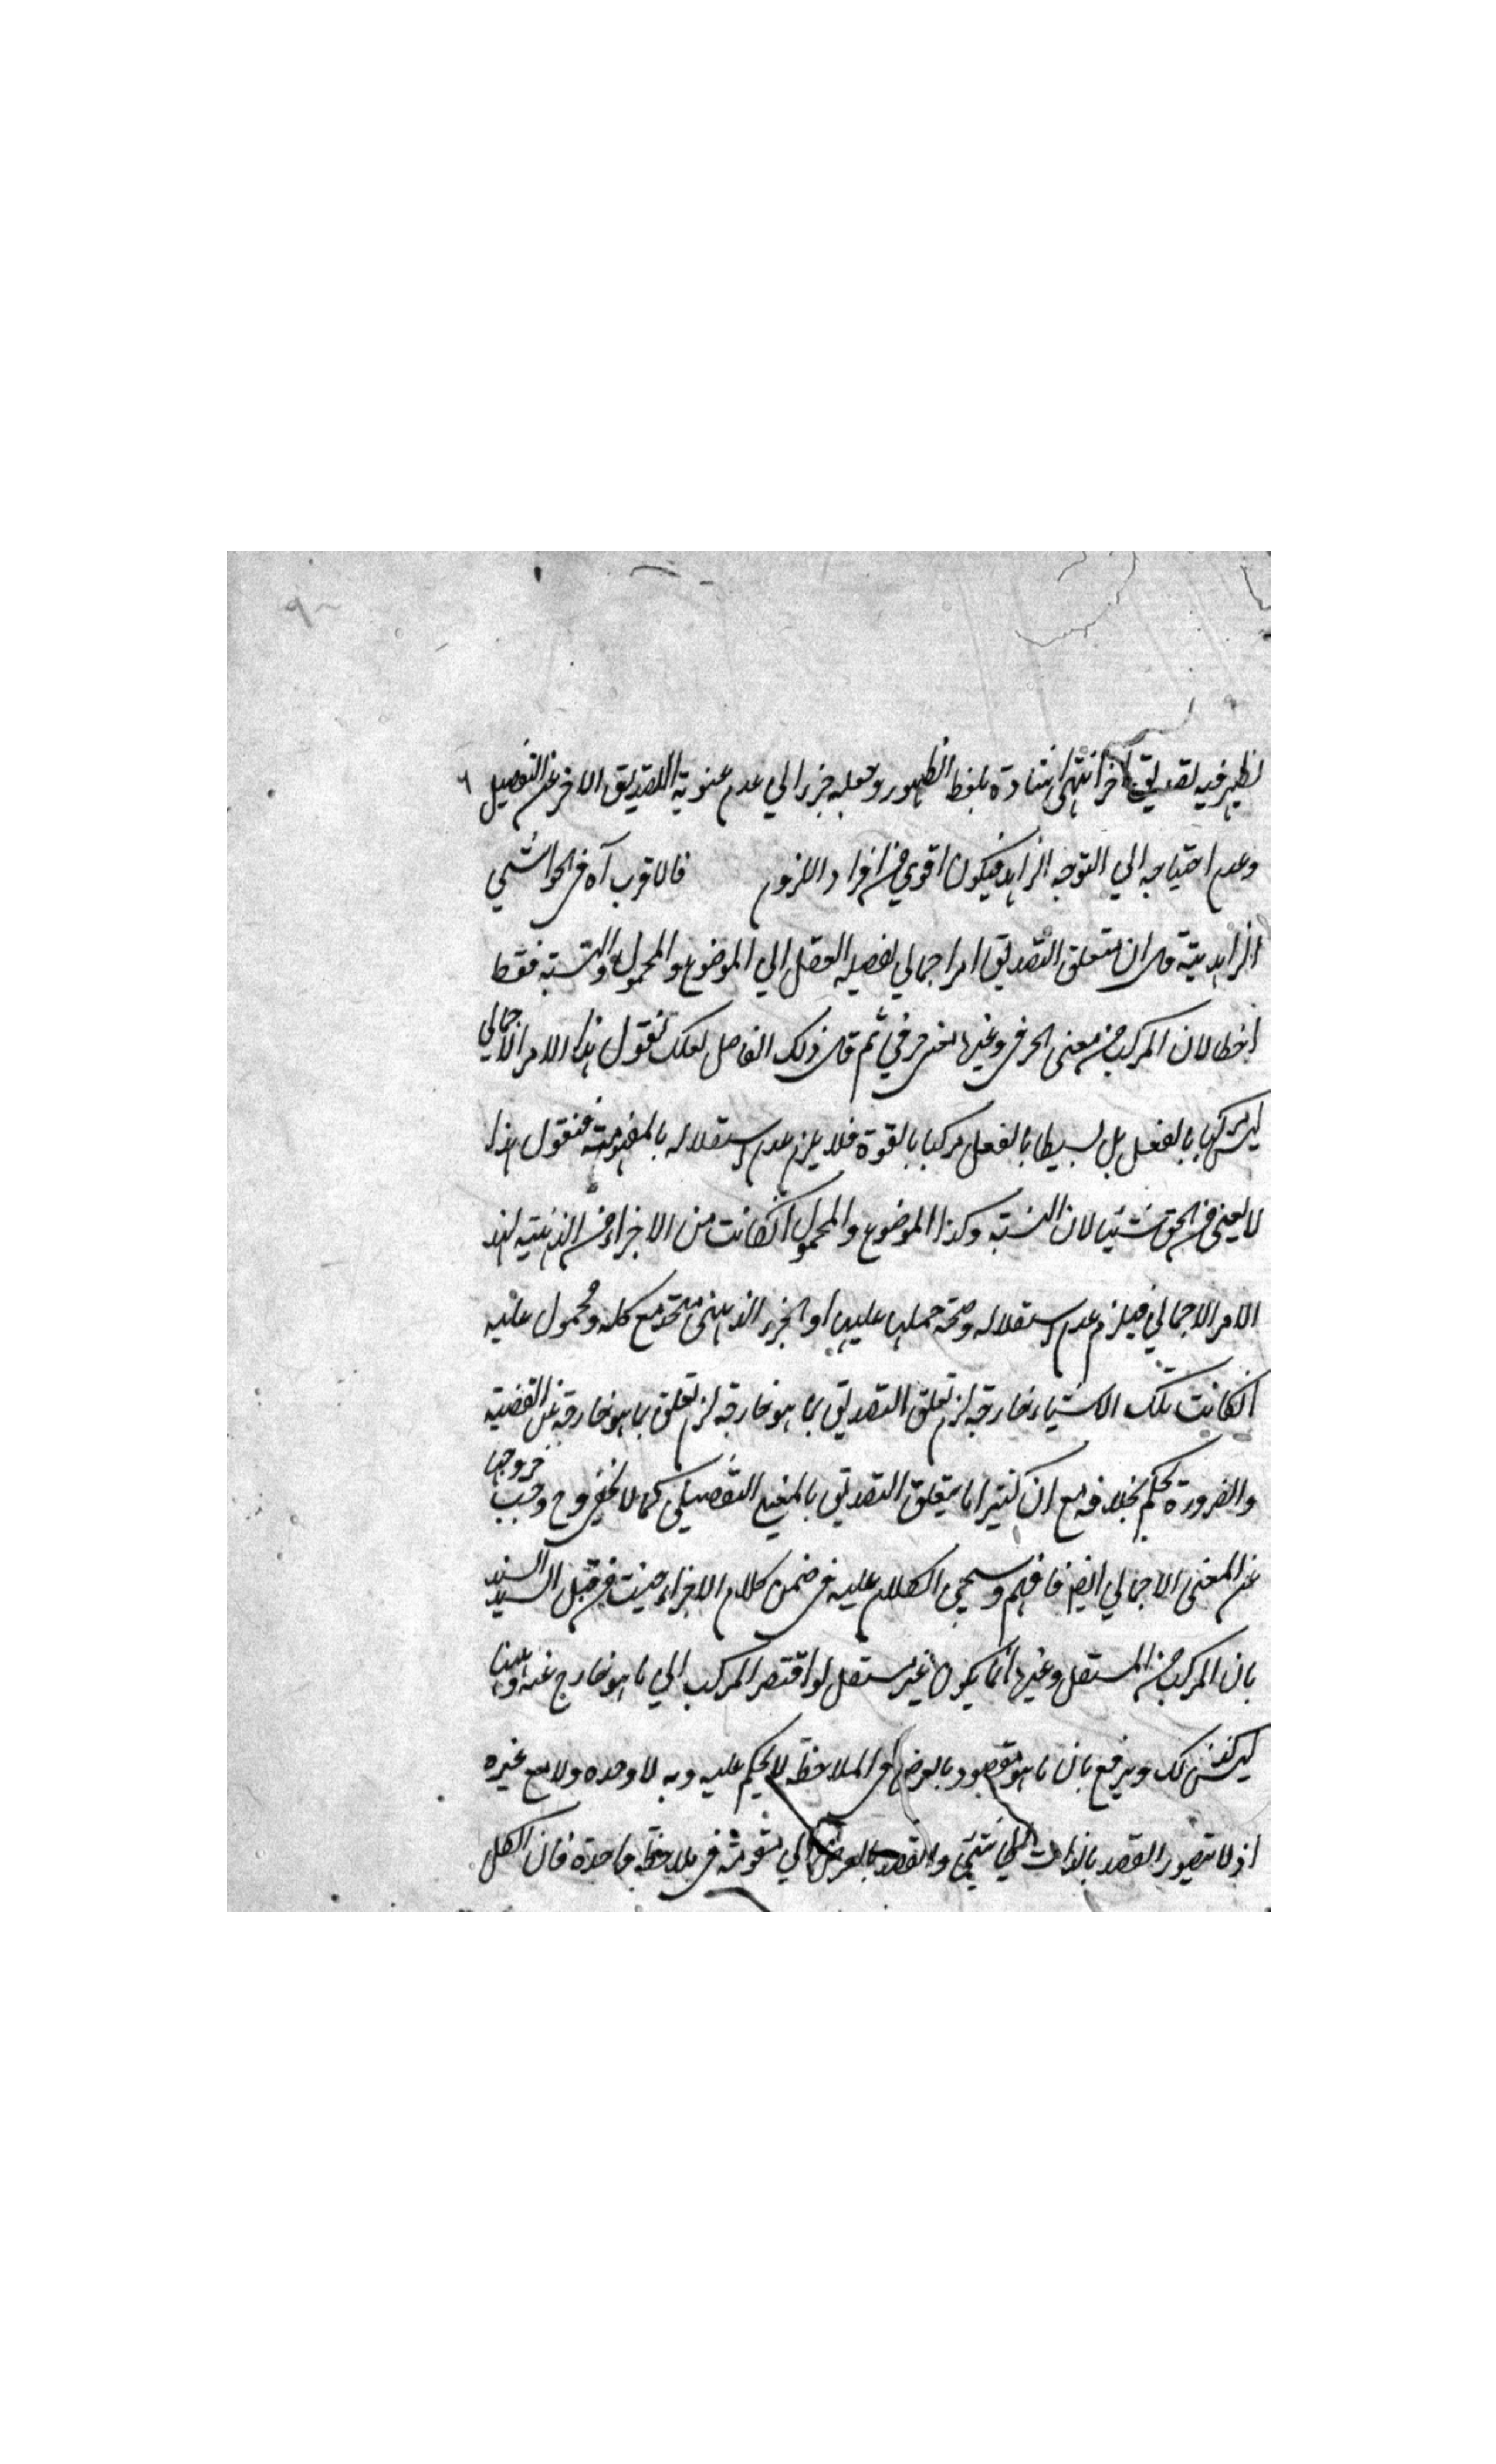 يظهر فيه تصديق آخر انتهى اشارة بلفظ الظهور وجعله جزء الي عدم عنوية التصديق الاخر عن التفصيل
وعدم احتياجه الي التوجه الزايد فيكون اقوي من افراد اللزوم فالاقرب آه في الحواشي
الزاهدية قال ان متعلق التصديق امر اجمالي يفصله العقل الي الموضوع والمحمول والنسبة فقط
اخطا لان المركب من معنى الحرفي وغيره معنى حرفي ثم قال ذلك الفاضل لعلك تقول هذا الامر الاجمالي
ليس مركبا بالفعل بل بسيطا بالفعل مركبا بالقوة فلا يلزم عدم استقلاله بالمفهومية فنقول هذا
لا يغني من الحق شيئا لان النسبة وكذا الموضوع والمحمول انكانت من الاجزاء الذهنية لهذ
الامر الاجمالي فيلزم عدم استقلاله وصحة حملها عليها اذ الجزء الذهني متحد مع كله ومحمول عليه
انكانت تلك الاشياء خارجة لزم تعلق التصديق بما هو خارجة لزم تعلق بما هو خارجة عن القضية
والضرورة تحكم بخلافه مع ان كثيرا ما يتعلق التصديق بالمعنى التفصيلي كما لا يخفى وح وجب خروجها
عن المعنى الاجمالي ايضا فافهم وسيجئ الكلام عليه في ضمن كلام الاجزاء من قبل السيد السند
بان المركب من المستقل وغيره انما يكون غير مستقل لو اقتصر المركب الي ما هو خارج عنه وههنا
ليس كذلك ويدفع بان ما هو مقصود بالعرض في الملاحظة لا يحكم عليه وبه لا وحده ولا مع غيره
اذ لا يتصور القصد بالذات الي شيئ والقصد بالعرض الي في ملاحظة واحدة فان الكل